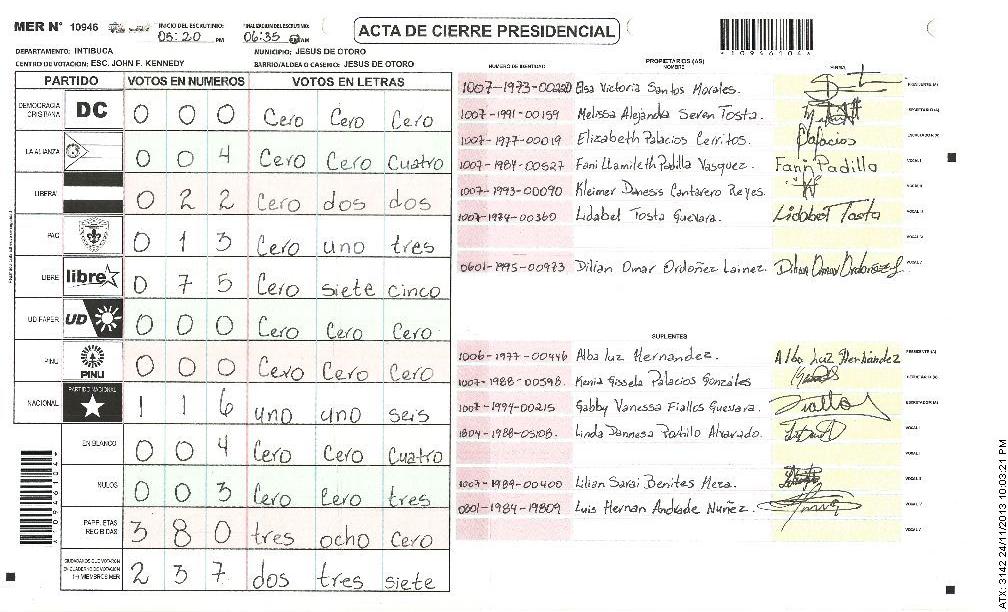 MER N° 10946 INICIO DEL ESCRUTINIO: 05:20 PM FINALIZACION DEL ESCRUTINIO: 06:35 ACTA DE CIERRE PRESIDENCIAL
DEPARTAMENTO: INTIBUCA MUNICIPIO: JESUS DE OTORO
CENTRO DE VOTACION: ESC. JOHN F. KENNEDY BARRIO/ALDEA O CASERIO: JESUS DE OTORO
PARTIDO VOTOS EN NUMEROS VOTOS EN LETRAS
DEMOCRACIA CRISTIANA DC 0 0 0 Cero Cero Cero
LA ALIANZA 0 0 4 Cero Cero Cuatro
LIBERAL 0 2 2 Cero dos dos
PAC 0 1 3 Cero uno tres
LIBRE libre 0 7 5 Cero siete cinco
UD FAPER UD 0 0 0 Cero Cero Cero
PINU PINU 0 0 0 Cero Cero Cero
NACIONAL PARTIDO NACIONAL 1 1 6 uno uno seis
EN BLANCO 0 0 4 Cero Cero Cuatro
NULOS 0 0 3 Cero Cero tres
PAPELETAS RECIBIDAS 3 8 0 tres ocho Cero
CIUDADANOS QUE VOTARON EN CUADERNO DE VOTACION (+) MIEMBROS MER 2 3 7 dos tres siete
PROPIETARIOS (AS)
NUMERO DE IDENTIDAD NOMBRE FIRMA
1007-1973-00220 Elsa Victoria Santos Morales. PRESIDENTE (A)
1007-1991-00159 Melissa Alejandra Seren Tosta. SECRETARIO (A)
1007-1977-00019 Elizabeth Palacios Cerritos. Palacios ESCRUTADOR (A)
1007-1984-00527 Fani Llamileth Padilla Vasquez. Fani Padilla VOCAL I
1007-1993-00090 Kleimer Danesis Cantarero Reyes. VOCAL II
1007-1974-00360 Lidabel Tosta Guevara. Lidabel Tosta VOCAL III
VOCAL IV
0601-1995-00973 Dilian Omar Ordoñez Lainez. Dilian Omar Ordoñez L. VOCAL V
SUPLENTES
1006-1977-00446 Alba luz Hernandez. Alba Luz Hernández PRESIDENTE (A)
1007-1988-00598. Kenia Gissela Palacios Gonzáles SECRETARIO (A)
1007-1994-00215 Gabby Vanessa Fiallos Guevara. Fiallos ESCRUTADOR (A)
1804-1988-05108. Linda Dannesa Portillo Alvarado. VOCAL I
1007-1989-00400 Lilian Sarai Benites Meza.
0801-1984-19809 Luis Hernan Andrade Nuñez.
VOCAL V
ATX: 3142 24/11/2013 10:03:21 PM